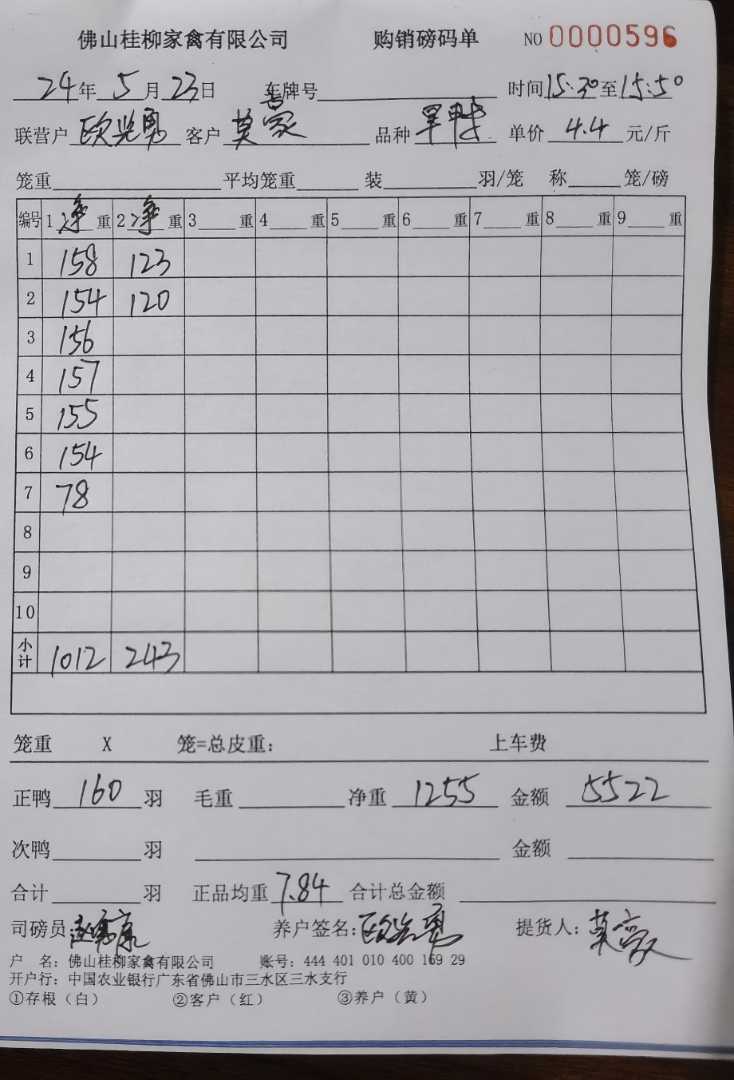 佛山桂柳家禽有限公司 购销磅码单 NO 0000596
24年 5月 23日 车牌号 时间15:30至15:50
联营户 欧兴勇 客户 莫豪 品种 单价 4.4 元/斤
笼重 平均笼重 装 羽/笼 称 笼/磅
编号 1 净 重 2 净 重 3 重 4 重 5 重 6 重 7 重 8 重 9 重
1 158 123
2 154 120
3 156
4 157
5 155
6 154
7 78
8
9
10
小计 1012 243
笼重 X 笼=总皮重: 上车费
正鸭 160 羽 毛重 净重 1255 金额 5522
次鸭 羽 金额
合计 羽 正品均重 7.84 合计总金额
司磅员: 养户签名: 欧兴勇 提货人: 莫豪
户 名: 佛山桂柳家禽有限公司 账号: 444 401 010 400 169 29
开户行: 中国农业银行广东省佛山市三水区三水支行
①存根(白) ②客户(红) ③养户(黄)